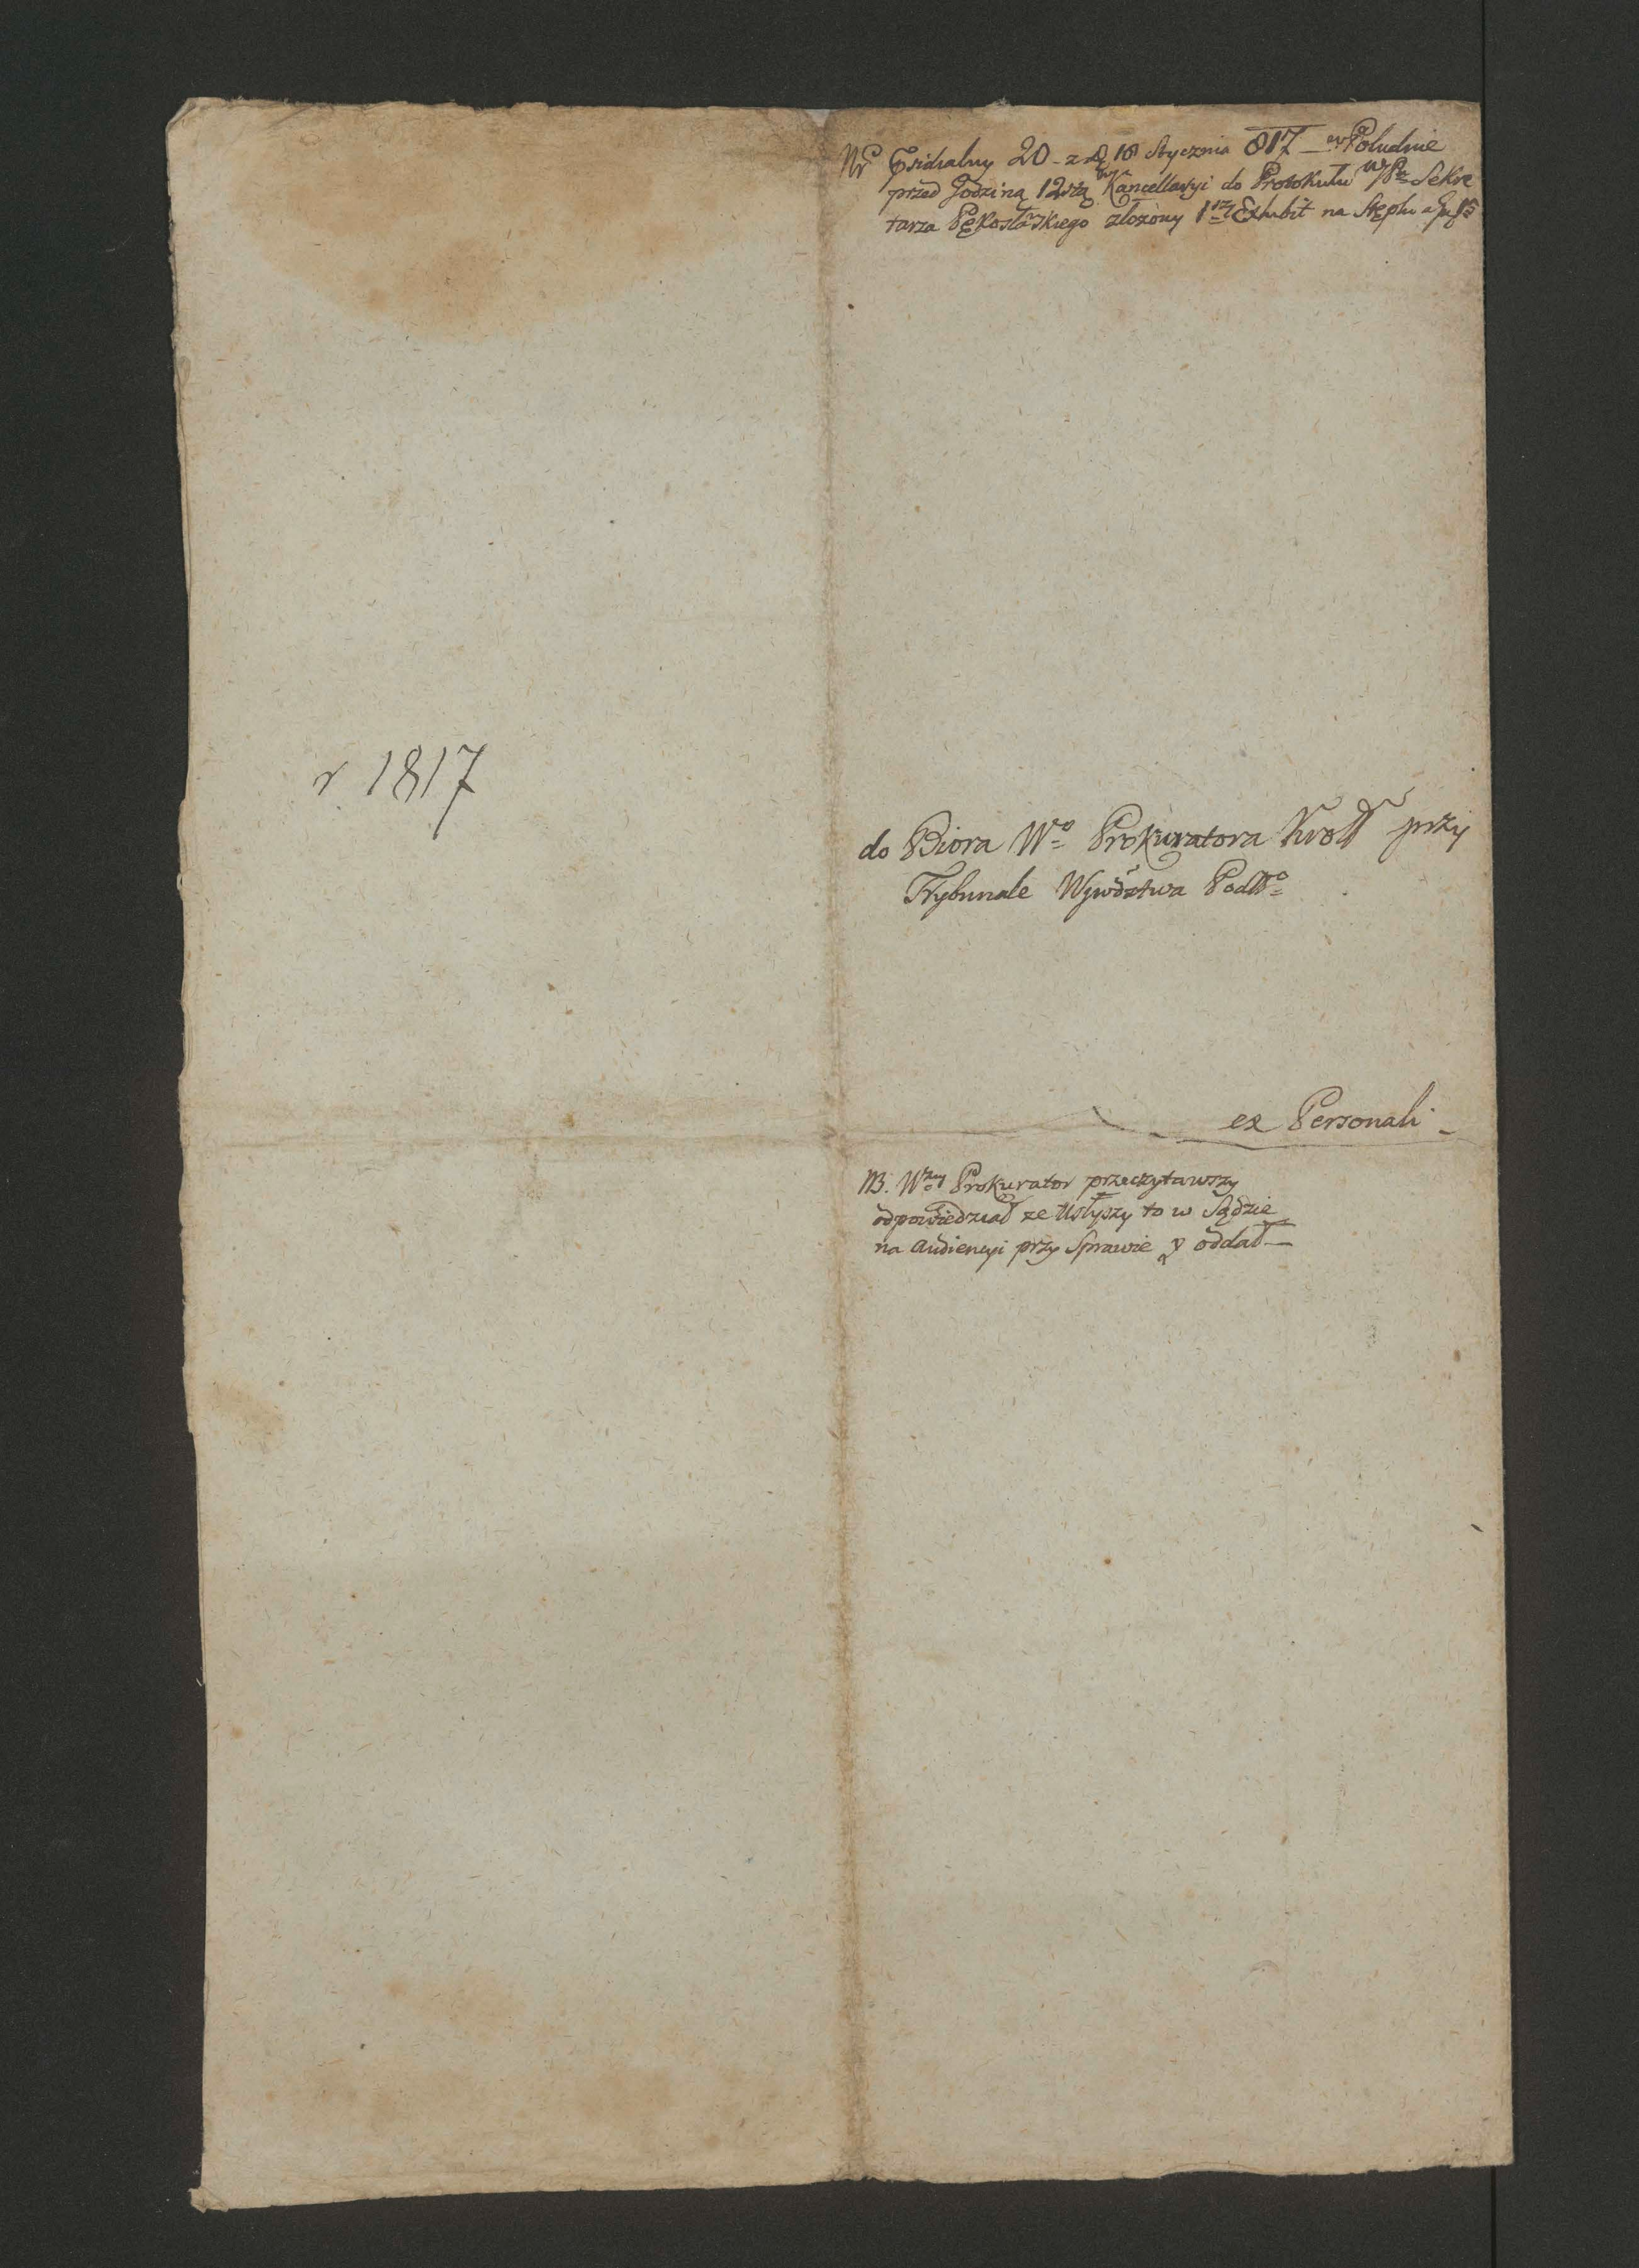 Nr Psidialny 20 - z d. 18 Stycznia 817 - w Południe
przed Godziną 12stą w Kancellaryi do Protokułu WPa Sekre
tarza Pękosławskiego złożony 1szy Exhibit na Stęplu
r 1817
do Biora Wo Prokuratora Kroll przy
Trybunale Wjwdztwa Podlo
ex Personali
NB. Wny Prokurator przeczytawszy
odpowiedział ze Usłyszy to w Sądzie
na Audiencyi przy Sprawie y oddał —